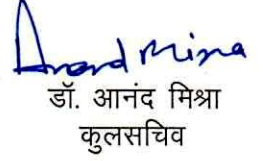 Anand Misra
डॉ. आनंद मिश्रा
कुलसचिव